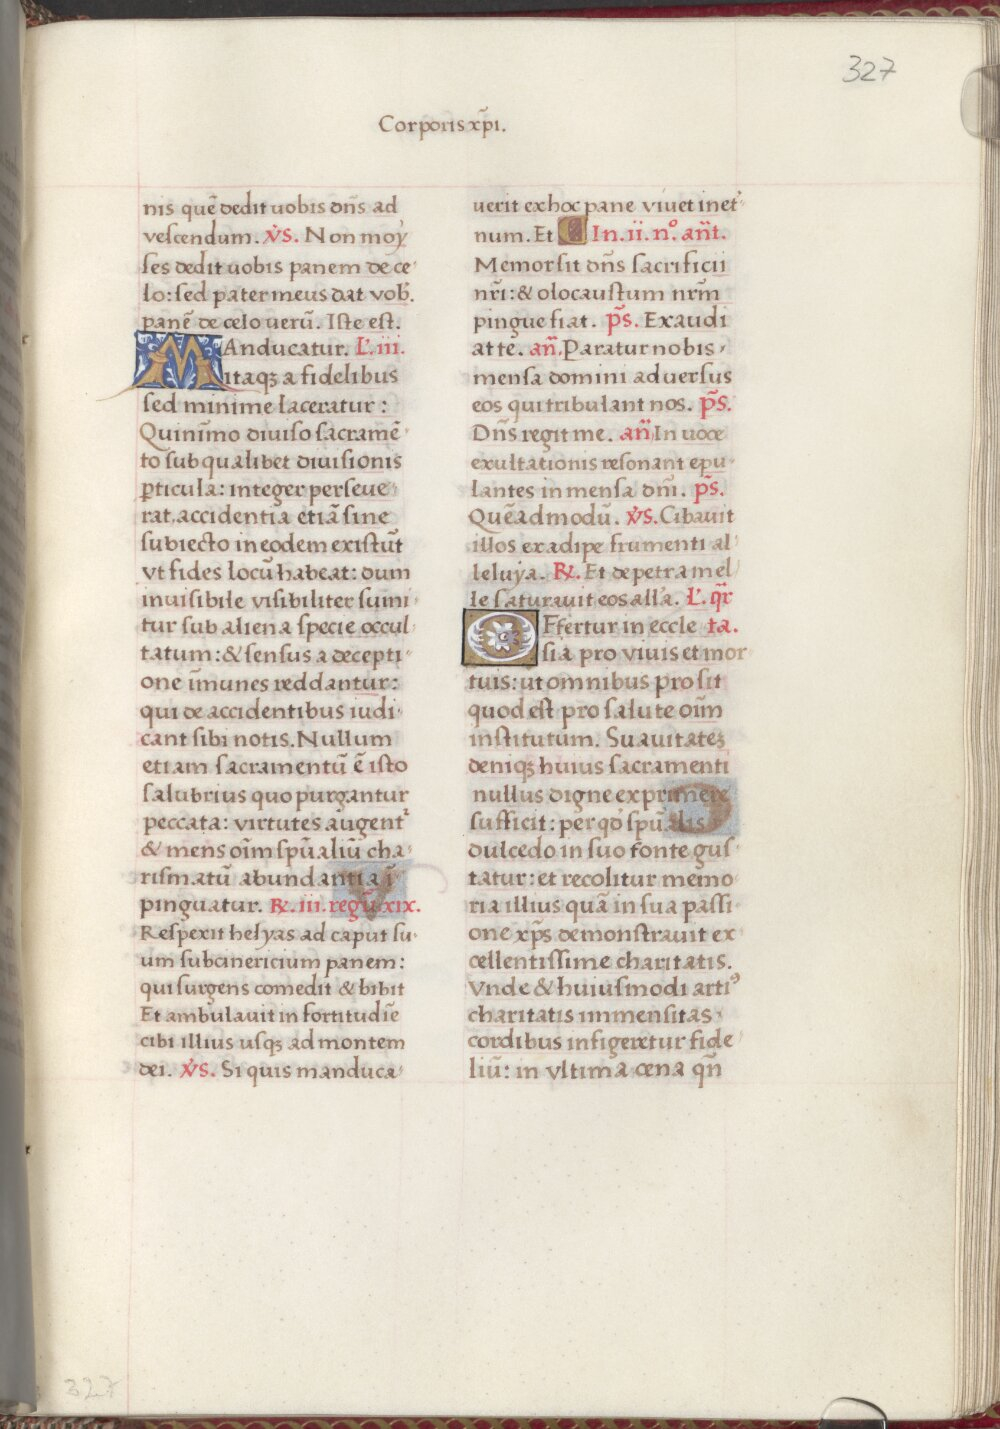 327
Corporis xp̃i.
nis quē dedit uobis dñs ad
vescendum. V̓S. Non moy
ses dedit uobis panem de ce
lo: sed pater meus dat vob̃.
panē de celo uerū. Iste est.
MAnducatur. L̓. iii.
itaqꝫ a fidelibus
sed minime laceratur:
Quinīmo diuiso sacramē
to sub qualibet diuisionis
ꝑticula: integer perseue
rat. accidentia etiā sine
subiecto in eodem existūt
vt fides locū habeat: dum
inuisibile visibiliter sumi
tur sub aliena specie occul
tatum: & sensus a decepti
one īmunes reddantur:
qui de accidentibus iudi
cant sibi notis. Nullum
etiam sacramentū ē isto
salubrius quo purgantur
peccata: virtutes augent᷑
& mens oīm spūaliū cha
rismatū abundantia ī
pinguatur. ℞. iii. regū xix.
Respexit helyas ad caput su
um subcinericium panem:
qui surgens comedit & bibit
Et ambulauit in fortitudīe
cibi illius usqꝫ ad montem
dei. V̓S. Si quis manduca
uerit ex hoc pane viuet in et̓
num. Et C In. ii. nº. añt.
Memor sit dñs sacrificii
nr̃i: & olocaustum nr̃m
pingue fiat. p̃s. Exaudi
at te. añ. Paratur nobis
mensa domini aduersus
eos qui tribulant nos. p̃s.
Dñs regit me. añ In uoce
exultationis resonant epu
lantes in mensa dñi. p̃s.
Quēadmodū. V̓S. Cibauit
illos ex adipe frumenti al
leluya. ℞. Et de petra mel
le saturauit eos all̓a. L̓. qr̃
OFfertur in eccle ta.
sia pro viuis et mor
tuis: ut omnibus prosit
quod est pro salute oīm
institutum. Suauitateꝫ
deniqꝫ huius sacramenti
nullus digne exprimere
sufficit: per qd̄ spūalis
dulcedo in suo fonte gus
tatur: et recolitur memo
ria illius quā in sua passi
one xp̃s demonstrauit ex
cellentissime charitatis.
Vnde & huiusmodi artiꝰ
charitatis immensitas
cordibus infigeretur fide
liū: in vltima cena qñ
327